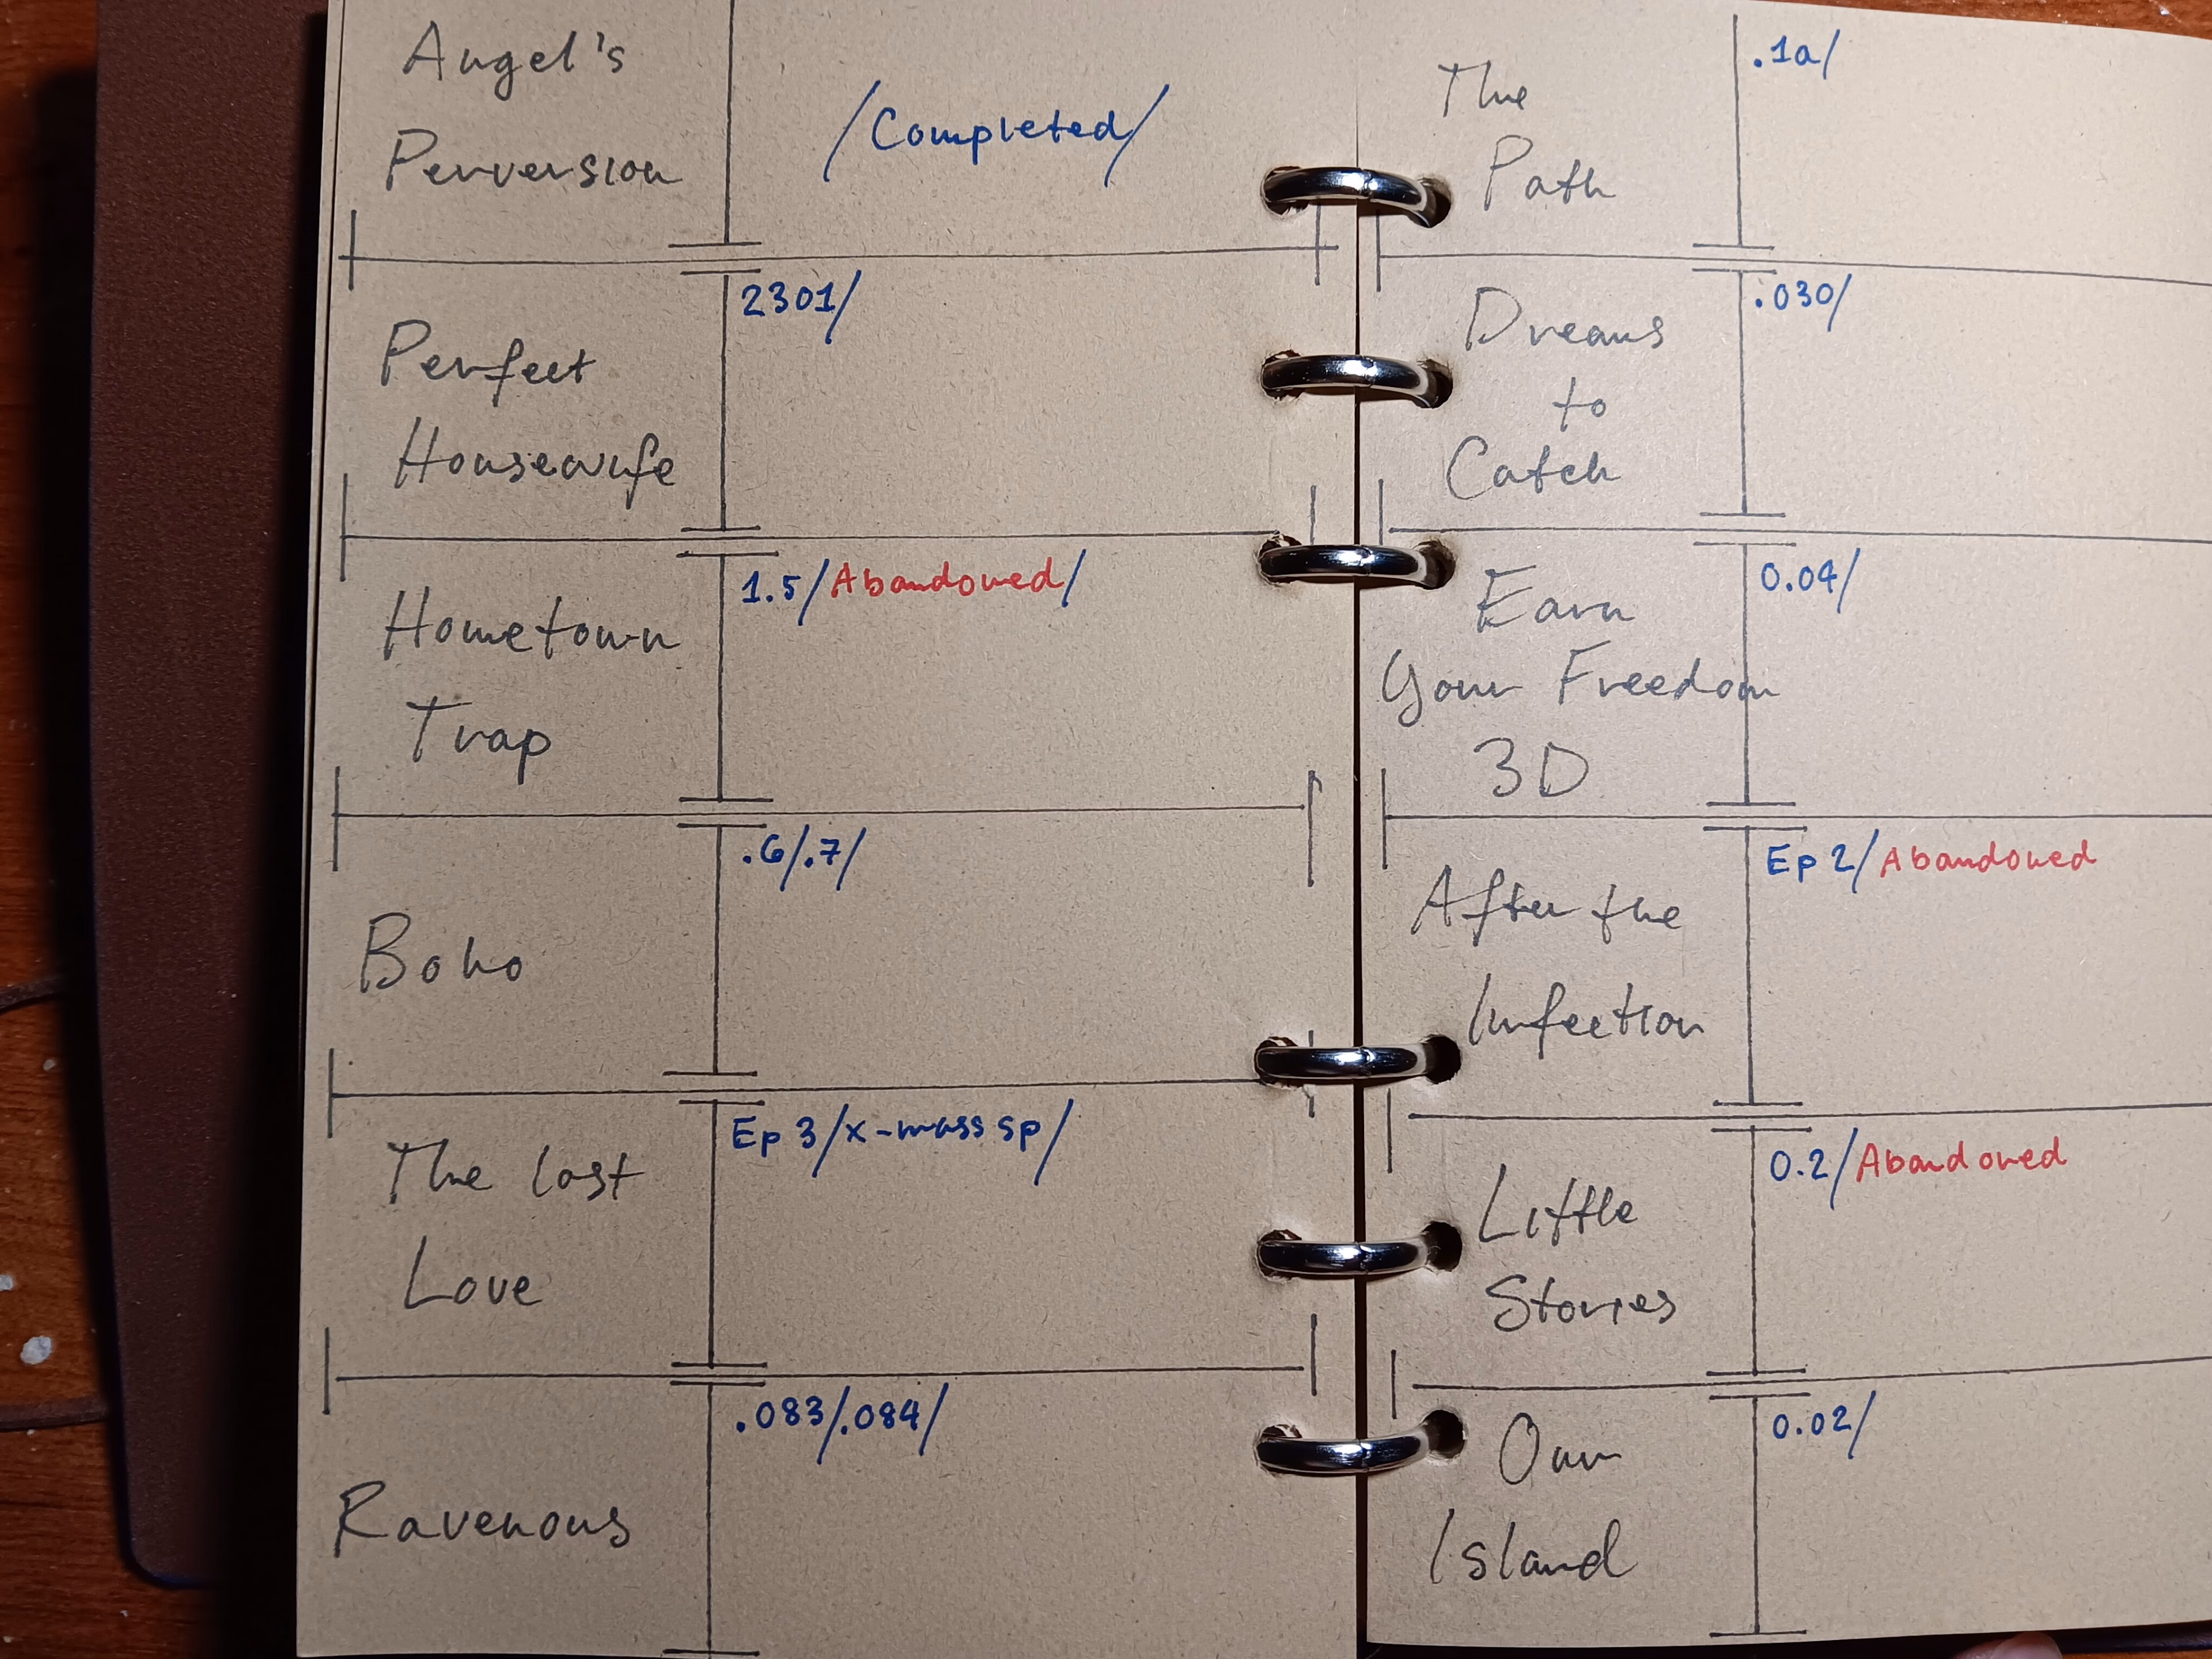 Angel's
Perversion
/Completed/
Perfect
Housewife
2301/
Hometown
Trap
1.5/Abandoned/
Boho
.6/.7/
The Last
Love
Ep 3/x-mass sp/
Ravenous
.083/.084/
The
Path
.1a/
Dreams
to
Catch
.030/
Earn
Your Freedom
3D
0.04/
After the
Infection
Ep 2/Abandoned
Little
Stories
0.2/Abandoned
Our
Island
0.02/